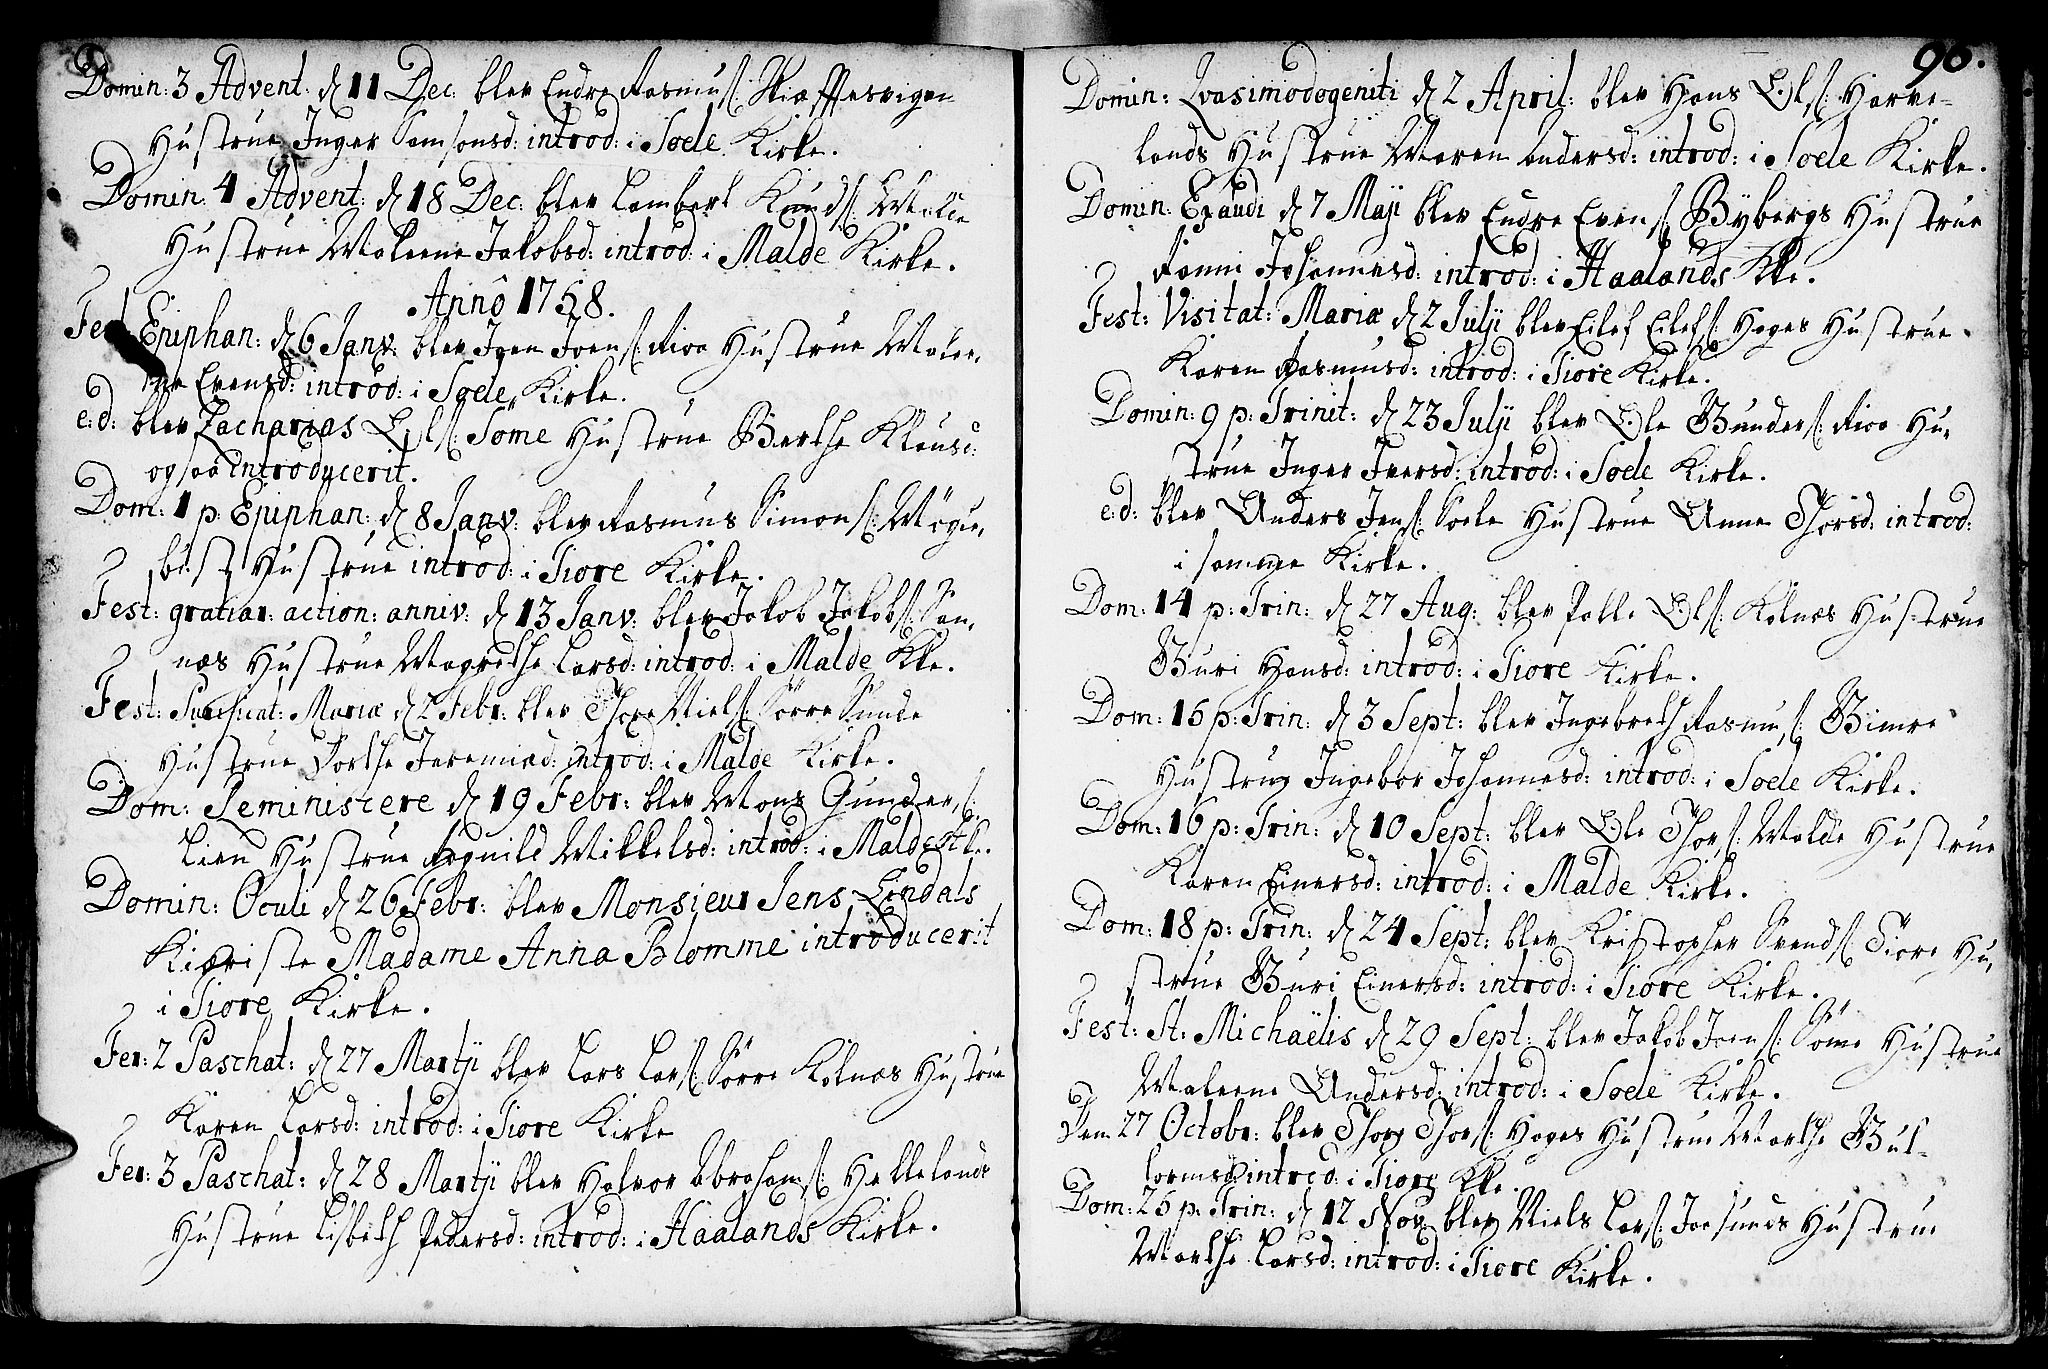 Domin: 3 Advent: d 11 Dec: blev Endre Rasmus: Skieffesvigen
Hustrue Inger Samsonsd: introd: i Soele Kirke.
Domin: 4 Advent: d 18 Dec: blev Lambert Knuds: Malde
Hustrue Maleene Jakobsd: introd: i Malde Kirke.
Anno 1758.
Fest: Epiphan: d 6 Janv: blev Joen Joens: Riøe Hustrue Malee,
ne Evensd: introd: i Soele Kirke.
e: d: blev Zacharias Ols: Søme Hustrue Berthe Klausd:
ogsaa introducerit.
Dom: 1 p: Epiphan: d 8 Janv: blev Rasmus Simons: Møgie,
bust Hustrue introd: i Tiore Kirke.
Fest: gratiar: action: anniv: d 13 Janv: blev Jakob Jakobs: San,
næs Hustrue Magrethe Larsd: introd: i Malde Kke.
Fest: Purificat: Mariæ d 2 Febr: blev Thore Niels: Sörre Sunde
Hustrue Dorthe Jeremiæd: introd: i Malde Kirke.
Dom: Reminiscere d 19 Febr: blev Mons Gunders:
Lieu Hustrue Rognild Mikkelsd: introd: i Malde Kke.
Domin: Oculi d 26 Febr: blev Monsieur Jens Lindals
Kieriste Madame Anna Blomme introducerit
i Tiore Kirke.
Fer: 2 Paschat: d 27 Martji blev Lars Lars: Sörre Kolnæs Hustrue
Karen Larsd: introd: i Tiore Kirke
Fer: 3 Paschat: d 28 Martji blev Halvor Abrahams: Hellelands
Hustrue Lisbeth Pedersd: introd: i Haalands Kirke.
96.
Domin: Qvasimodogeniti d 2 April: blev Hans Ols: Harve-
lands Hustrue Maren Andersd: introd: i Soele Kirke.
Domin: Exaudi d 7 Maji blev Endre Evens: Bybergs Hustrue
Ranni Johannesd: introd: i Haalands Kke.
Fest: Visitat: Mariæ d 2 Julji blev Eilef Eilefs: Hoges Hustrue
Karen Rasmusd: introd: i Tiore Kirke.
Domin: 9 p: Trinit: d 23 Julji blev Ole Gunders: Riøe Hu,
strue Inger Iversd: introd: i Soele Kirke.
e: d: blev Anders Jens: Soele Hustrue Anna Thorsd: introd:
i samme Kirke.
Dom: 14 p: Trin: d 27 Aug: blev Palle Ols: Kolnæs Hustrue
Guri Hansd: introd: i Tiore Kirke.
Dom: 15 p: Trin: d 3 Sept: blev Ingebreth Rasmus: Gimre
Hustrue Ingebor Johannesd: introd: i Soele Kirke.
Dom: 16 p: Trin: d 10 Sept: blev Ole Thors: Malde Hustrue
Karen Einersd: introd: i Malde Kirke.
Dom: 18 p: Trin: d 24 Sept: blev Kristopher Svends: Tiore Hu,
strue Guri Einersd: introd: i Tiore Kirke.
Fest: St: Michaëlis d 29 Sept: blev Jakob Joens: Söme Hustrue
Maleene Andersd: introd: i Soele Kirke.
Den 27 Octobr: blev Thore Thors: Hoges Hustrue Marthe Gul-
lormsd: introd: i Tiore Kke.
Dom: 25 p: Trin: d 12 Nov: blev Niels Lars: Joesunds Hustrue
Marthe Larsd: introd: i Tiore Kirke.